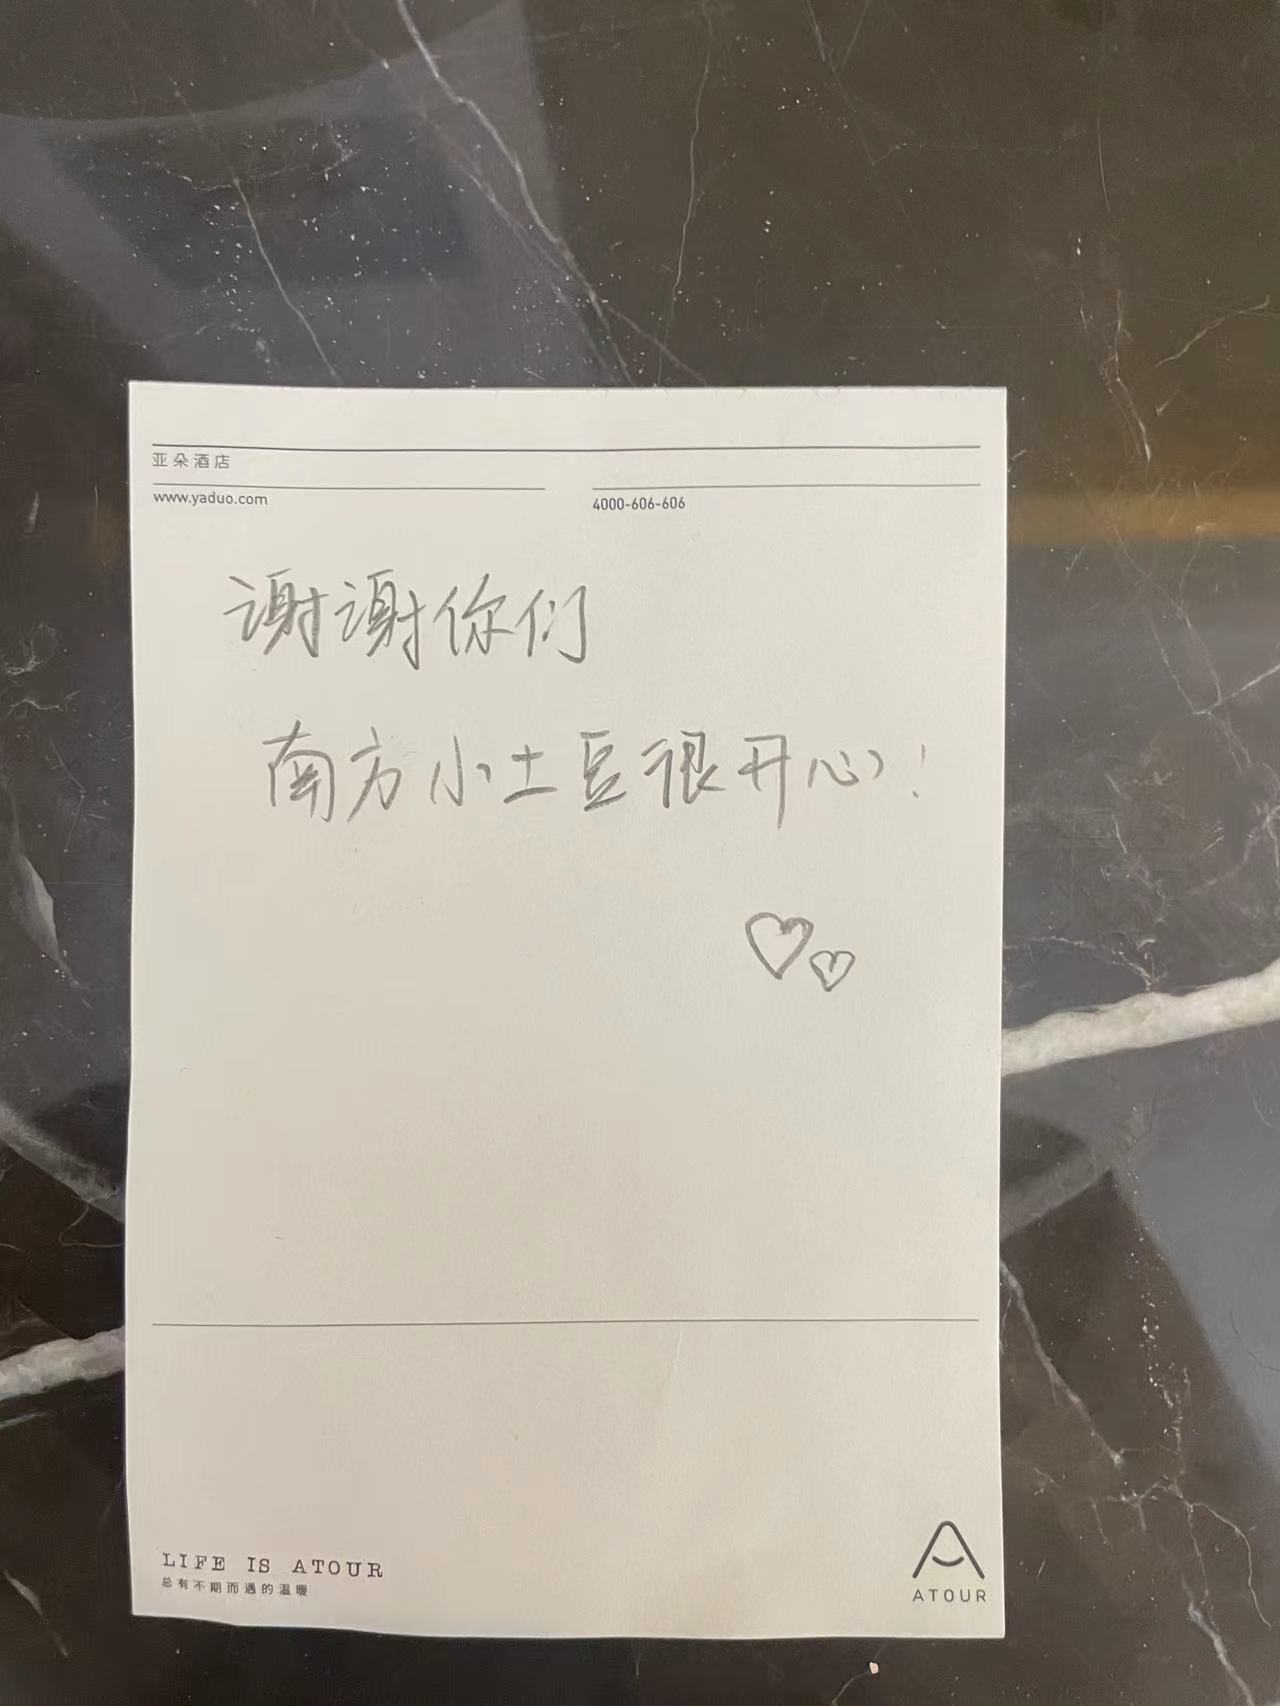 亚朵酒店
www.yaduo.com
4000-606-606
谢谢你们
南方小土豆很开心！
LIFE IS ATOUR
总有不期而遇的温暖
ATOUR